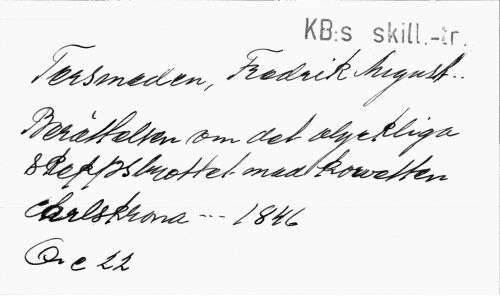 KB:s skill.-tr.
Tersmeden, Fredrik August..
Berättelsen om det olyckliga
Skeppsbrottet med korvetten
Carlskrona --- 1846
Qv c 22